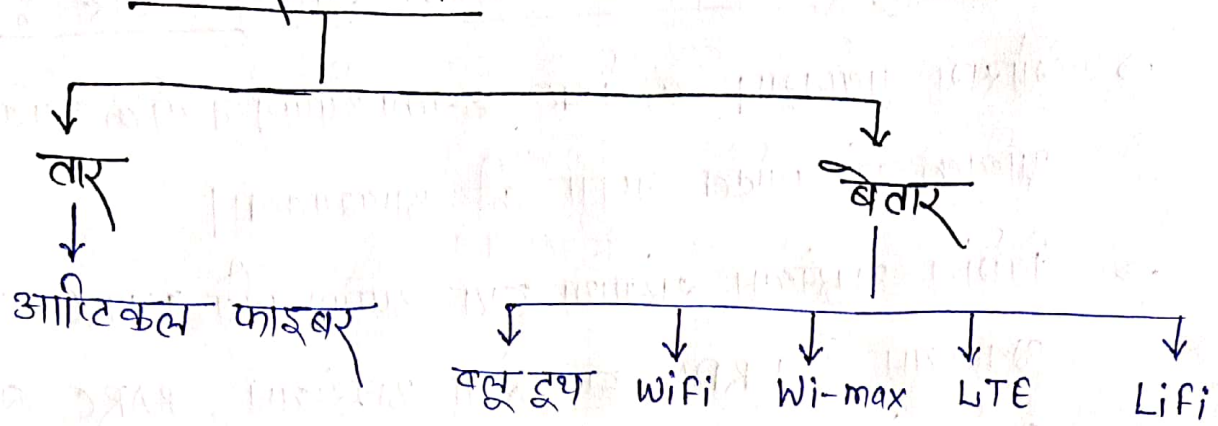 तार
बेतार
आप्टिकल फाइबर
ब्लू टूथ WiFi Wi-max LTE Lifi